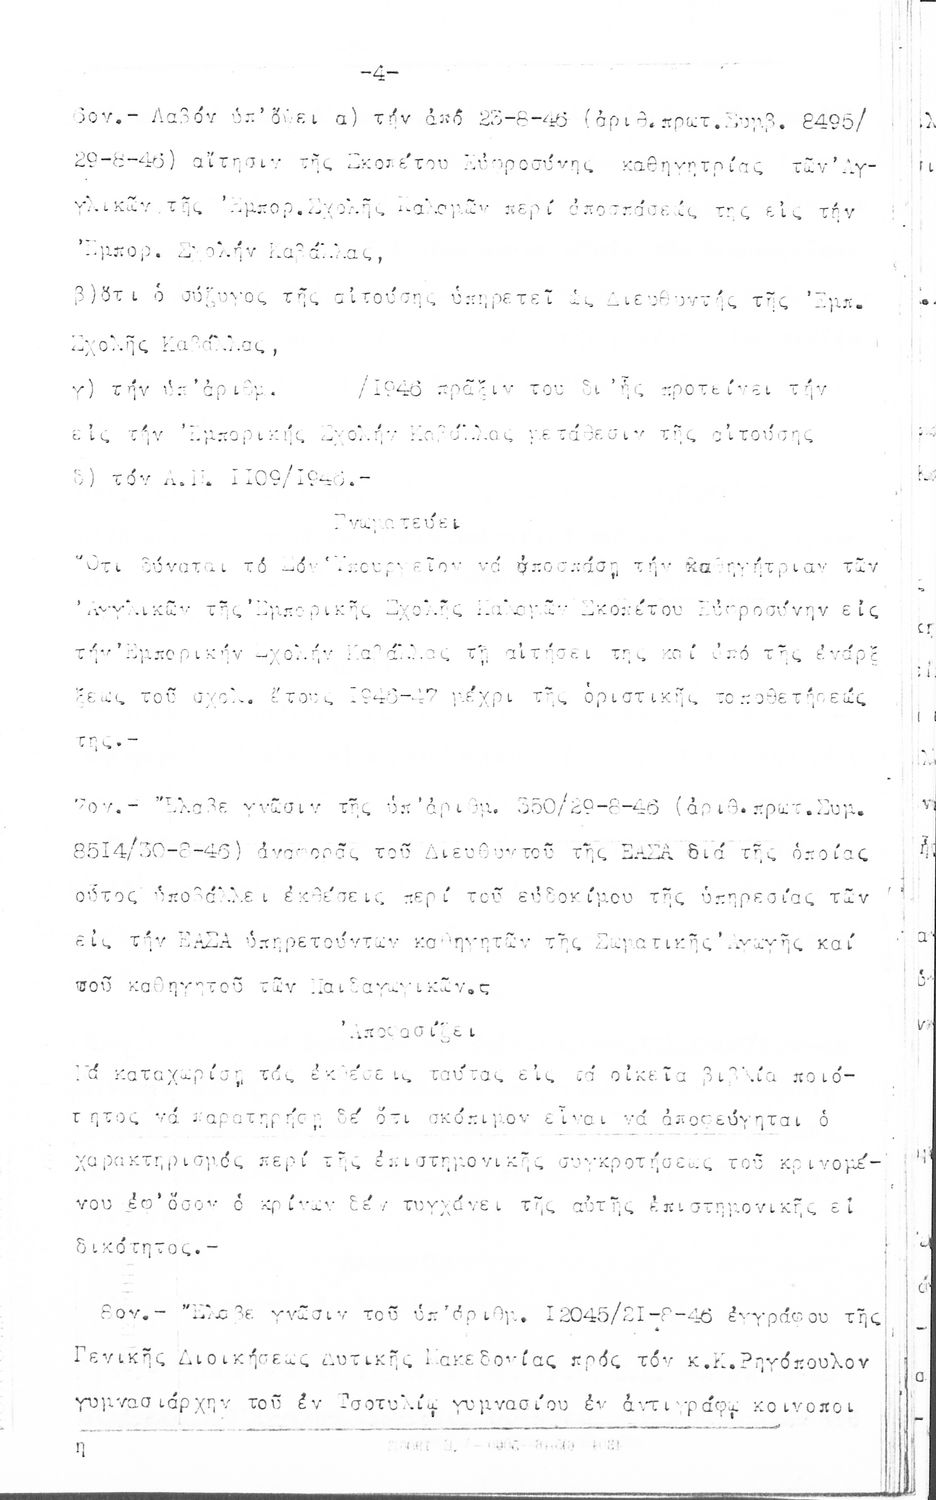 -4-
6ον.- Λαβόν ὑπ'ὄψει α) τήν ἀπό 23-8-46 (ἀριθ.πρωτ.Συμβ. 8495/
29-8-46) αἴτησιν τῆς Σκοπέτου Εὐφροσύνης καθηγητρίας τῶν 'Αγ-
γλικῶν τῆς 'Εμπορ.Σχολῆς Καλαμῶν περί ἀποσπάσεώς της εἰς τήν
'Εμπορ. Σχολήν Καβάλλας,
β)ὅτι ὁ σύζυγος τῆς αἰτούσης ὑπηρετεῖ ὡς Διευθυντής τῆς 'Εμπ.
Σχολῆς Καβάλλας,
γ) τήν ὑπ'ἀριθμ. /1946 πρᾶξιν του δι'ἧς προτείνει τήν
εἰς τήν 'Εμπορικής Σχολήν Καβάλλας μετάθεσιν τῆς αἰτούσης
δ) τόν Α.Ν. 1109/1946.-
Γνωματεύει
"Οτι δύναται τό Σόν 'Υπουργεῖον νά ἀποσπάσῃ τήν καθηγήτριαν τῶν
'Αγγλικῶν τῆς 'Εμπορικῆς Σχολῆς Καλαμῶν Σκοπέτου Εὐφροσύνην εἰς
τήν 'Εμπορικήν Σχολήν Καβάλλας τῇ αἰτήσει της καί ἀπό τῆς ἐνάρξ
ξεως τοῦ σχολ. ἔτους 1946-47 μέχρι τῆς ὁριστικῆς τοποθετήσεώς
της.-
7ον.- "Ελαβε γνῶσιν τῆς ὑπ'ἀριθμ. 350/29-8-46 (ἀριθ.πρωτ.Συμ.
8514/30-8-46) ἀναφορᾶς τοῦ Διευθυντοῦ τῆς ΕΑΣΑ διά τῆς ὁποίας
οὗτος ὑποβάλλει ἐκθέσεις περί τοῦ εὐδοκίμου τῆς ὑπηρεσίας τῶν
εἰς τήν ΕΑΣΑ ὑπηρετούντων καθηγητῶν τῆς Σωματικῆς 'Αγωγῆς καί
τοῦ καθηγητοῦ τῶν Παιδαγωγικῶν.ς
'Αποφασίζει
Νά καταχωρίσῃ τάς ἐκθέσεις ταύτας εἰς τά οἰκεῖα βιβλία ποιό-
τητος νά παρατηρήσῃ δέ ὅτι σκόπιμον εἶναι νά ἀποφεύγηται ὁ
χαρακτηρισμός περί τῆς ἐπιστημονικῆς συγκροτήσεως τοῦ κρινομέ-
νου ἐφ'ὅσον ὁ κρίνων δέν τυγχάνει τῆς αὐτῆς ἐπιστημονικῆς εἰ
δικότητος.-
8ον.- "Ελαβε γνῶσιν τοῦ ὑπ'ἀριθμ. 12045/21-8-46 ἐγγράφου τῆς
Γενικῆς Διοικήσεως Δυτικῆς Μακεδονίας πρός τόν κ.Κ.Ρηγόπουλον
γυμνασιάρχην τοῦ ἐν Τσοτυλίῳ γυμνασίου ἐν ἀντιγράφῳ κοινοποι
η